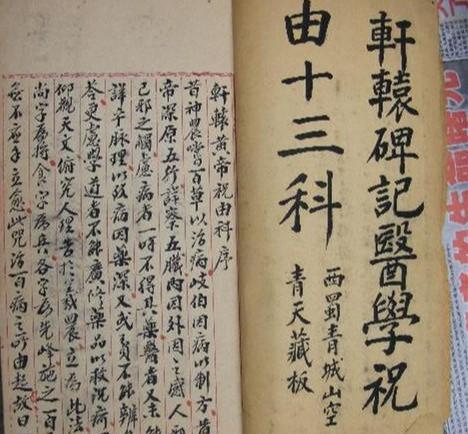 軒轅碑記醫學祝
由十三科
西蜀青城山空
青天藏板
軒轅黃帝祝由科序
昔神農嘗百草以治病歧伯因病以制方昔
帝深原五行詳察五臟內因外因之感人邪
己邪之觸慮病者一時不得其藥醫者又未能
詳乎脈理以致病因藥深又或貧不能辦
苓更慮學道者不能廣修藥品以救沉疴
仰觀天文俯究人理告於羲農立為此法
尚字為將食字為兵各字為先峰施之百
無不應手立愈此咒治百病之所由起故曰